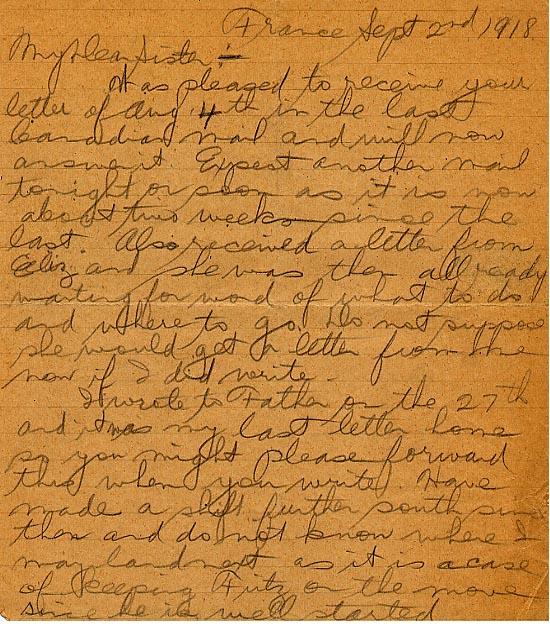 France Sept 2nd 1918
My Dear Sister;-
Was pleased to receive your
letter of Aug 4th in the last
Canadian mail and will now
answer it. Expect another mail
tonight or soon as it is now
about two weeks since the
last. Also received a letter from
Eliz and she was then all ready
waiting for word of what to do
and where to go. Do not suppose
she would get a letter from me
now if I did write.
I wrote to Father on the 27th
and it was my last letter home
so you might please forward
this when you write. Have
made a shift further south since
then and do not know where I
may land next as it is a case
of keeping Fritz on the move
since he is well started